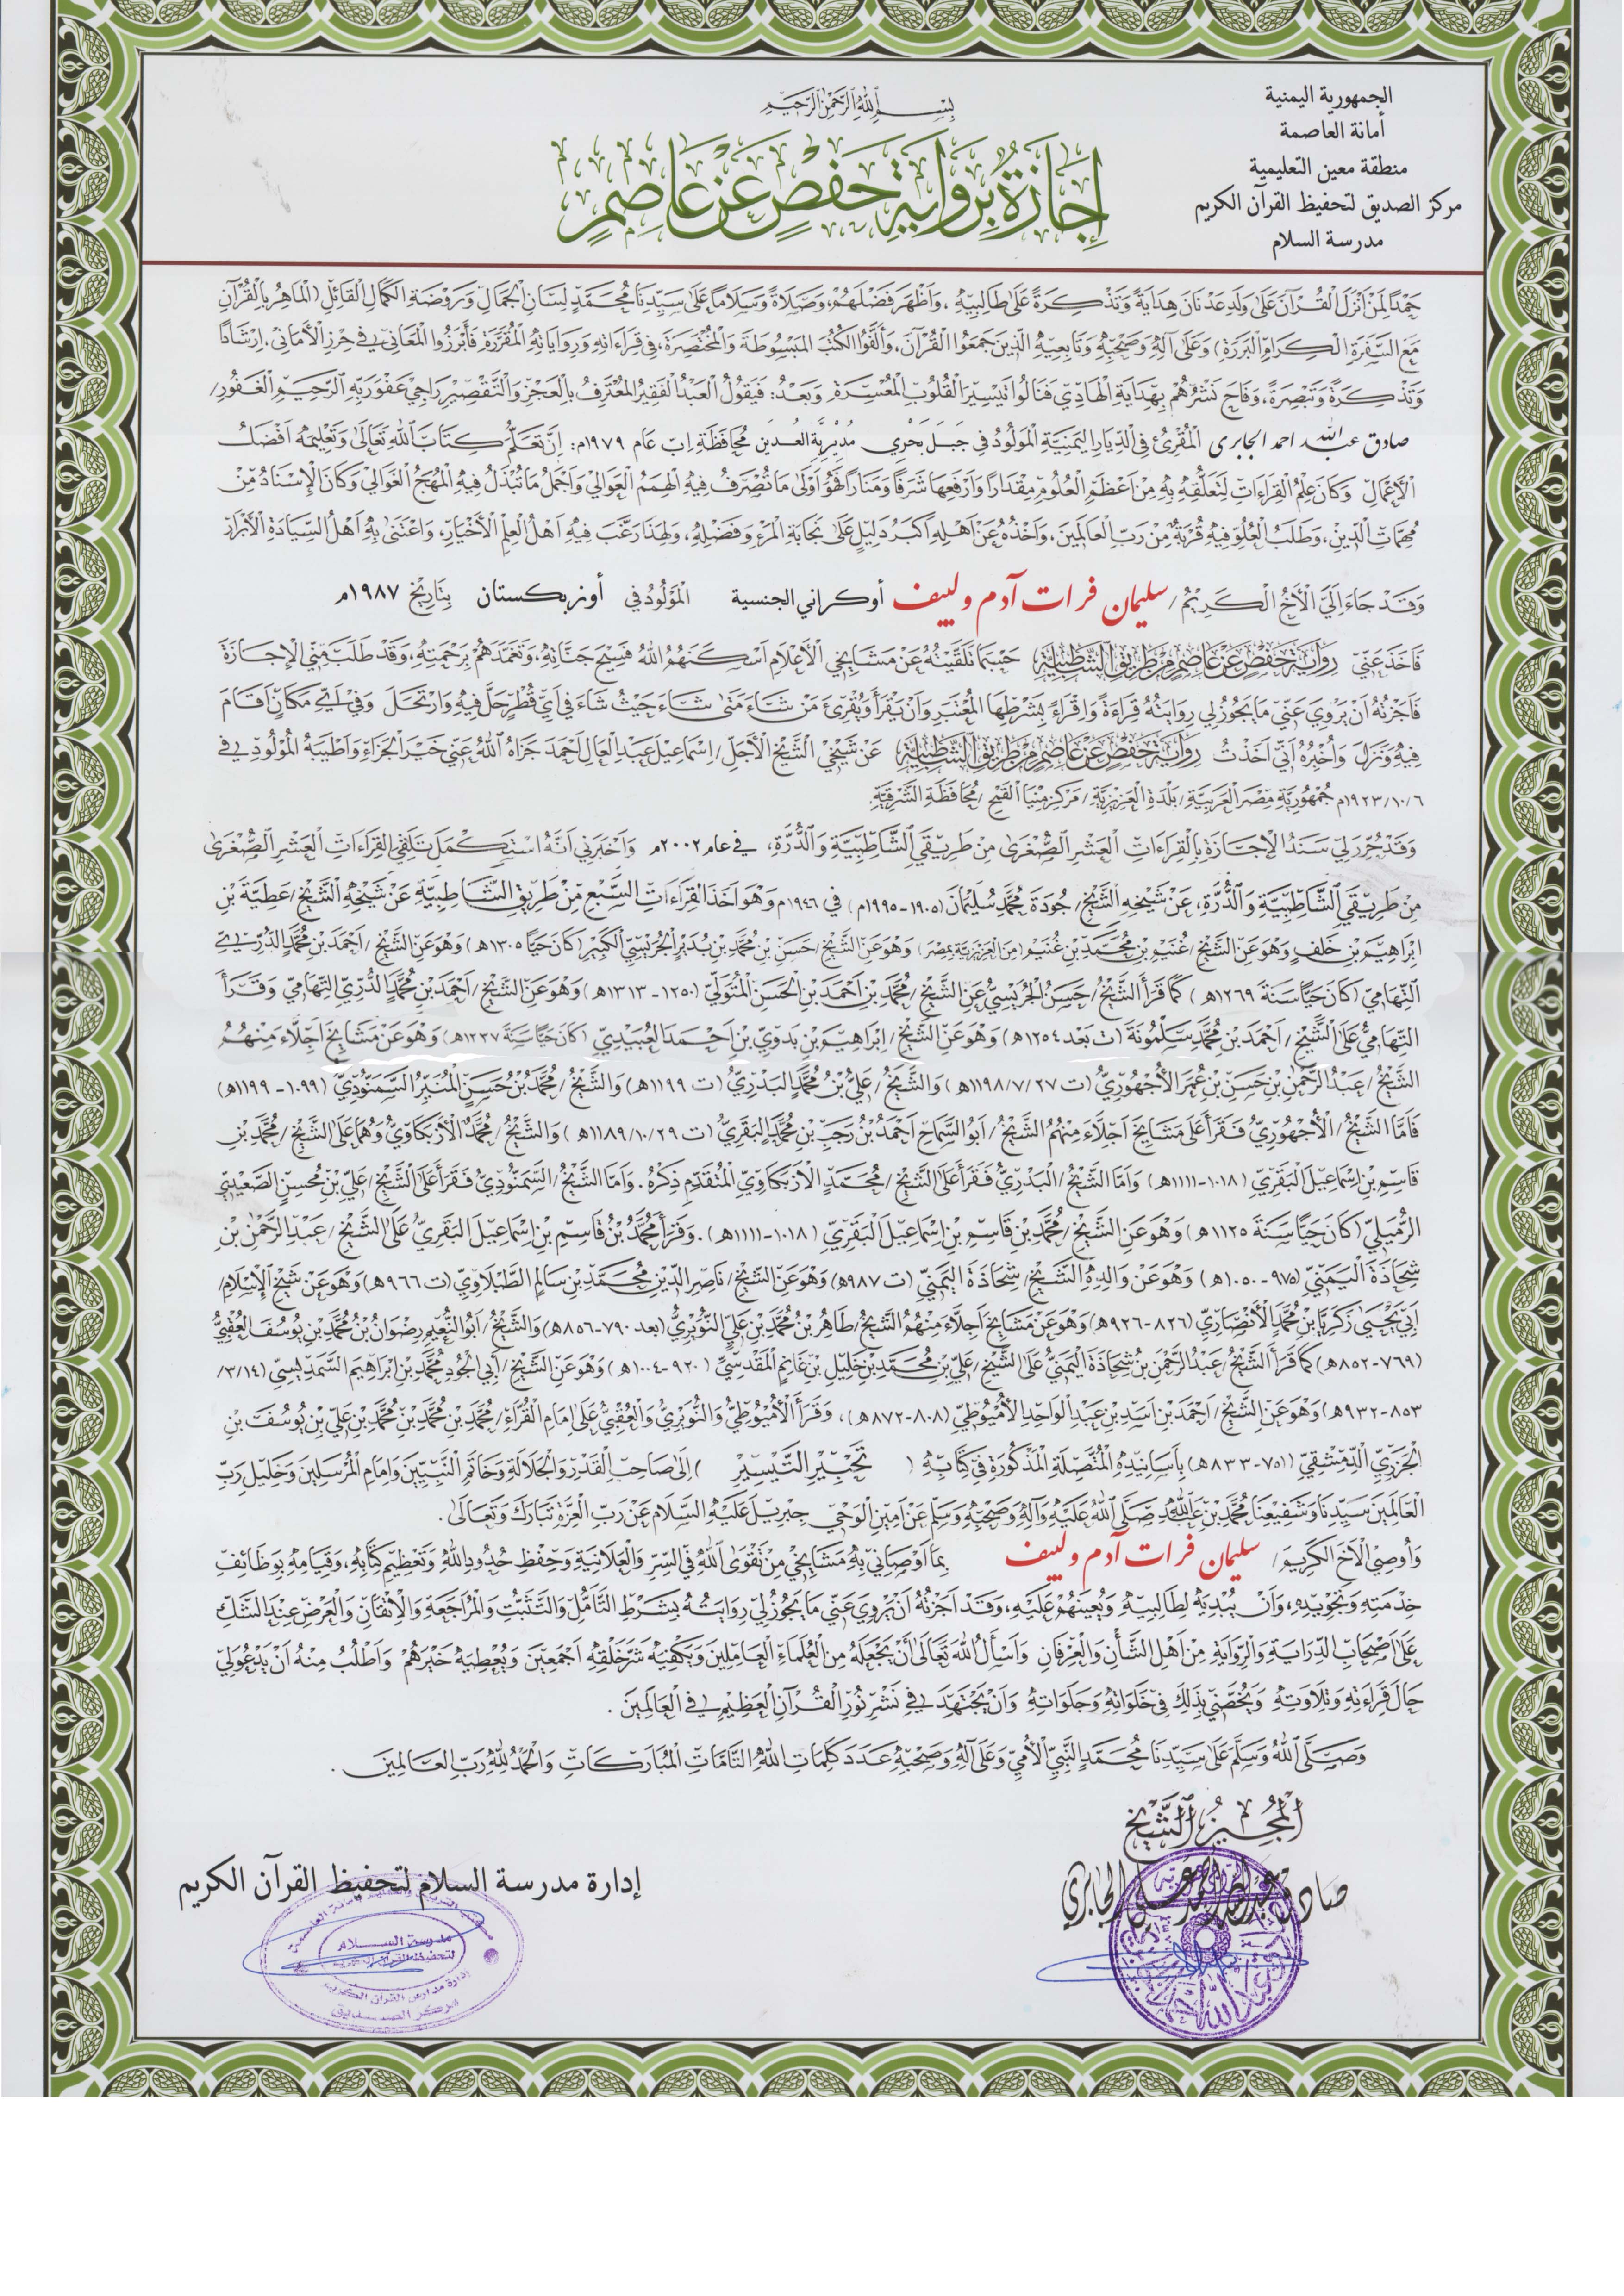 الجمهورية اليمنية
أمانة العاصمة
منطقة معين التعليمية
مركز الصديق لتحفيظ القرآن الكريم
مدرسة السلام
بسم الله الرحمن الرحيم
إجازة برواية حفص عن عاصم
حمدا لمن أنزل القرآن على ولد عدنان هداية وتذكرة على طالبيه، وأظهر فضلهم، وصلاة وسلاما على سيدنا محمد لسان الجمال وروضة الكمال القائل (الماهر بالقرآن
مع السفرة الكرام البررة) وعلى آله وصحبه وتابعيه الذين جمعوا القرآن، وألفوا الكتب المبسوطة والمختصرة، في قراءاته ورواياته المقررة، فأبرزوا المعاني في حرز الأماني، إرشادا
وتذكرة وتبصرة، وفاح نشرهم بهداية الهادي فنالوا تيسير القلوب المعسرة. وبعد: فيقول العبد الفقير المعترف بالعجز والتقصير راجي عفو ربه الرحيم الغفور/
صادق عبدالله احمد الجابري المقرئ في الديار اليمنية المولود في جبل بحري مديرية العدين محافظة إب عام ١٩٧٩م: إن تعلم كتاب الله تعالى وتعليمه أفضل
الأعمال وكان علم القراءات لتعلقه به من أعظم العلوم مقدارا وأرفعها شرفا ومنارا فهو أولى ما تصرف فيه الهمم العوالي وأجمل ما تبذل فيه المهج الغوالي وكان الإسناد من
مهمات الدين، وطلب العلو فيه قربة من رب العالمين، وأخذه عن أهله أكبر دليل على نجابة المرء وفضله، ولهذا رغب فيه أهل العلم الأخيار، واعتنى به أهل السيادة الأبرار
وقد جاء إلي الأخ الكريم/ سليمان فرات آدم ولييف أوكراني الجنسية المولود في أوزبكستان بتاريخ ١٩٨٧م
فأخذ عني رواية حفص عن عاصم من طريق الشاطبية حيثما تلقيته عن مشايخي الأعلام أسكنهم الله فسيح جناته، وتغمدهم برحمته، وقد طلب مني الإجازة
فأجزته أن يروي عني ما يجوز لي روايته قراءة وإقراء بشرطها المعتبر وأن يقرأ ويقرئ من شاء متى شاء حيث شاء في أي قطر حل فيه وارتحل وفي أي مكان أقام
فيه ونزل وأخبره أني أخذت رواية حفص عن عاصم من طريق الشاطبية عن شيخي الشيخ الأجل/ إسماعيل عبد العال أحمد جزاه الله عني خير الجزاء وأطيبه المولود في
١٩٢٣/١٠/٦م جمهورية مصر العربية/ بلدة العزيزية/ مركز منيا القمح/ محافظة الشرقية.
وقد حرر لي سند الإجازة بالقراءات العشر الصغرى من طريقي الشاطبية والدرة، في عام ٢٠٠٢م وأخبرني أنه استكمل تلقي القراءات العشر الصغرى
من طريقي الشاطبية والدرة، عن شيخه الشيخ/ جودة محمد سليمان (١٩٠٥-١٩٩٥م) في ١٩٤٦م وهو أخذ القراءات السبع من طريق الشاطبية عن شيخه الشيخ/ عطية بن
إبراهيم بن خلف وهو عن الشيخ/ غنيم بن محمد بن غنيم (من العزيزية بمصر) وهو عن الشيخ/ حسن بن محمد بن بدير الجريسي الكبير (كان حيا ١٣٠٥هـ) وهو عن الشيخ/ أحمد بن محمد الدري
التهامي (كان حيا سنة ١٢٦٩هـ) كما قرأ الشيخ/ حسن الجريسي عن الشيخ/ محمد بن أحمد بن الحسن المتولي (١٢٥٠-١٣١٣هـ) وهو عن الشيخ/ أحمد بن محمد الدري التهامي وقرأ
التهامي على الشيخ/ أحمد بن محمد سلمونة (ت بعد ١٢٥٤هـ) وهو عن الشيخ/ إبراهيم بن بدوي بن أحمد العبيدي (كان حيا سنة ١٢٣٧هـ) وهو عن مشايخ أجلاء منهم
الشيخ/ عبد الرحمن بن حسن بن عمر الأجهوري (ت ١١٩٨/٧/٢٧هـ) والشيخ/ علي بن محمد البدري (ت ١١٩٩هـ) والشيخ/ محمد بن حسن المنير السمنودي (١٠٩٩-١١٩٩هـ)
فأما الشيخ/ الأجهوري فقرأ على مشايخ أجلاء منهم الشيخ/ أبو السماح أحمد بن رجب بن محمد البقري (ت ١١٨٩/١٠/٢٩هـ) والشيخ/ محمد الأزبكاوي وهما على الشيخ/ محمد بن
قاسم بن إسماعيل البقري (١٠١٨-١١١١هـ) وأما الشيخ/ البدري فقرأ على الشيخ/ محمد الأزبكاوي المتقدم ذكره. وأما الشيخ/ السمنودي فقرأ على الشيخ/ علي بن محسن الصعيدي
الرميلي (كان حيا سنة ١١٢٥هـ) وهو عن الشيخ/ محمد بن قاسم بن إسماعيل البقري (١٠١٨-١١١١هـ). وقرأ محمد بن قاسم بن إسماعيل البقري على الشيخ/ عبد الرحمن بن
شحاذة اليمني (٩٧٥-١٠٥٠هـ) وهو عن والده الشيخ/ شحاذة اليمني (ت ٩٨٧هـ) وهو عن الشيخ/ ناصر الدين محمد بن سالم الطبلاوي (ت ٩٦٦هـ) وهو عن شيخ الإسلام/
أبي يحيى زكريا بن محمد الأنصاري (٨٢٦-٩٢٦هـ) وهو عن مشايخ أجلاء منهم الشيخ/ طاهر بن محمد بن علي النويري (بعد ٧٩٠-٨٥٦هـ) والشيخ/ أبو النعيم رضوان بن محمد بن يوسف العقبي
(٧٦٩-٨٥٢هـ) كما قرأ الشيخ/ عبد الرحمن بن شحاذة اليمني على الشيخ/ علي بن محمد بن خليل بن غانم المقدسي (٩٢٠-١٠٠٤هـ) وهو عن الشيخ/ أبي الجود محمد بن إبراهيم السمديسي (٣/١٤/
٨٥٣-٩٣٢هـ) وهو عن الشيخ/ أحمد بن أسد بن عبد الواحد الأميوطي (٨٠٨-٨٧٢هـ)، وقرأ الأميوطي والنويري والعقبي على إمام القراء/ محمد بن محمد بن محمد بن علي بن يوسف بن
الجزري الدمشقي (٧٥١-٨٣٣هـ) بأسانيده المتصلة المذكورة في كتابه (تحبير التيسير) إلى صاحب القدر والجلالة وخاتم النبيين وإمام المرسلين وخليل رب
العالمين سيدنا وشفيعنا محمد بن عبدالله صلى الله عليه وآله وصحبه وسلم عن أمين الوحي جبريل عليه السلام عن رب العزة تبارك وتعالى.
وأوصي الأخ الكريم/ سليمان فرات آدم ولييف بما أوصاني به مشايخي من تقوى الله في السر والعلانية وحفظ حدود الله وتعظيم كتابه، وقيامه بوظائف
خدمته وتجويده، وأن يبديه لطالبيه ويعينهم عليه، وقد أجزته أن يروي عني ما يجوز لي روايته بشرط التأمل والتثبت والمراجعة والإتقان والعرض عند الشك
على أصحاب الدراية والرواية من أهل الشأن والعرفان وأسأل الله تعالى أن يجعله من العلماء العاملين ويكفيه شر خلقه أجمعين ويعطيه خيرهم وأطلب منه أن يدعو لي
حال قراءته وتلاوته ويخصني بذلك في خلواته وجلواته وأن يجتهد في نشر نور القرآن العظيم في العالمين.
وصلى الله وسلم على سيدنا محمد النبي الأمي وعلى آله وصحبه عدد كلمات الله التامات المباركات والحمد لله رب العالمين.
المجيز الشيخ
صادق عبدالله احمد علي الجابري
إدارة مدرسة السلام لتحفيظ القرآن الكريم
مدرسة السلام
لتحفيظ القرآن الكريم
إدارة مدارس القرآن الكريم
مركز الصديق